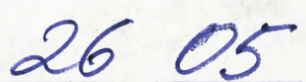 26 05